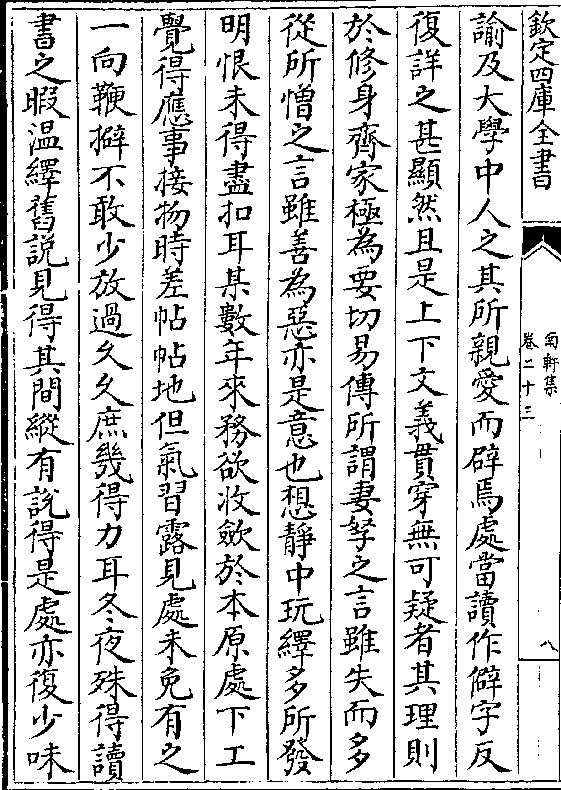 欽定四庫全書
南軒集
卷二十三
八
諭及大學中人之其所親愛而辟焉處當讀作僻字反
復詳之甚顯然且是上下文義貫穿無可疑者其理則
於修身齊家極為要切易傳所謂妻孥之言雖失而多
從所憎之言雖善為惡亦是意也想靜中玩繹多所發
明恨未得盡扣耳某數年來務欲收斂於本原處下工
覺得應事接物時差帖帖地但氣習露見處未免有之
一向鞭擗不敢少放過久久庶幾得力耳冬夜殊得讀
書之暇温繹舊說見得其間縱有說得是處亦復少味